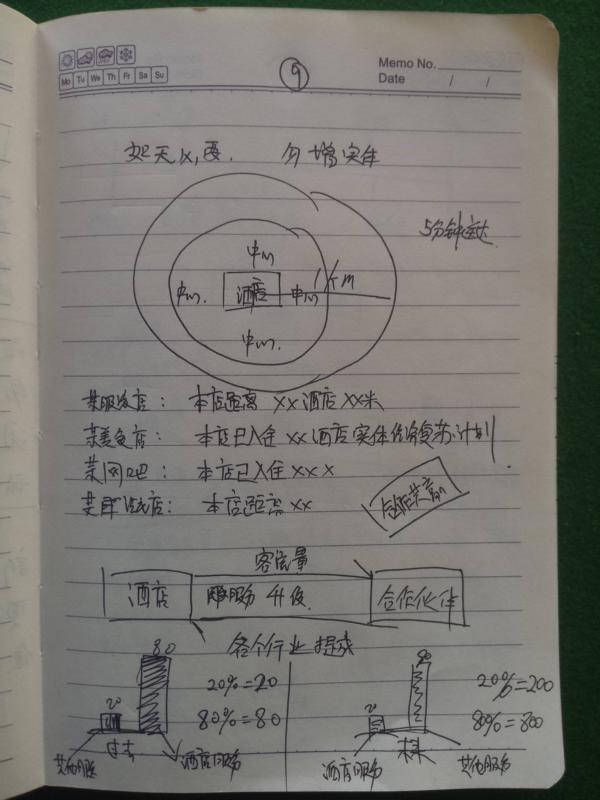 Mo Tu We Th Fr Sa Su
9
Memo No.
Date / /
增实体
5分钟送达
中心
中心 酒店 中心 1个m
中心
某服发店：本店距离 xx酒店 xx米
某美食店：本店已入住 xx酒店实体经济复苏计划
某网吧：本店已入住 xxx
本店距离 xx
合作共赢
客流量
酒店 服务升级 合作伙伴
各个行业提成
20 80 20%=20
80%=80
过去
其他服务 酒店服务
20 80 20%=200
80%=800
未来
酒店服务 其他服务